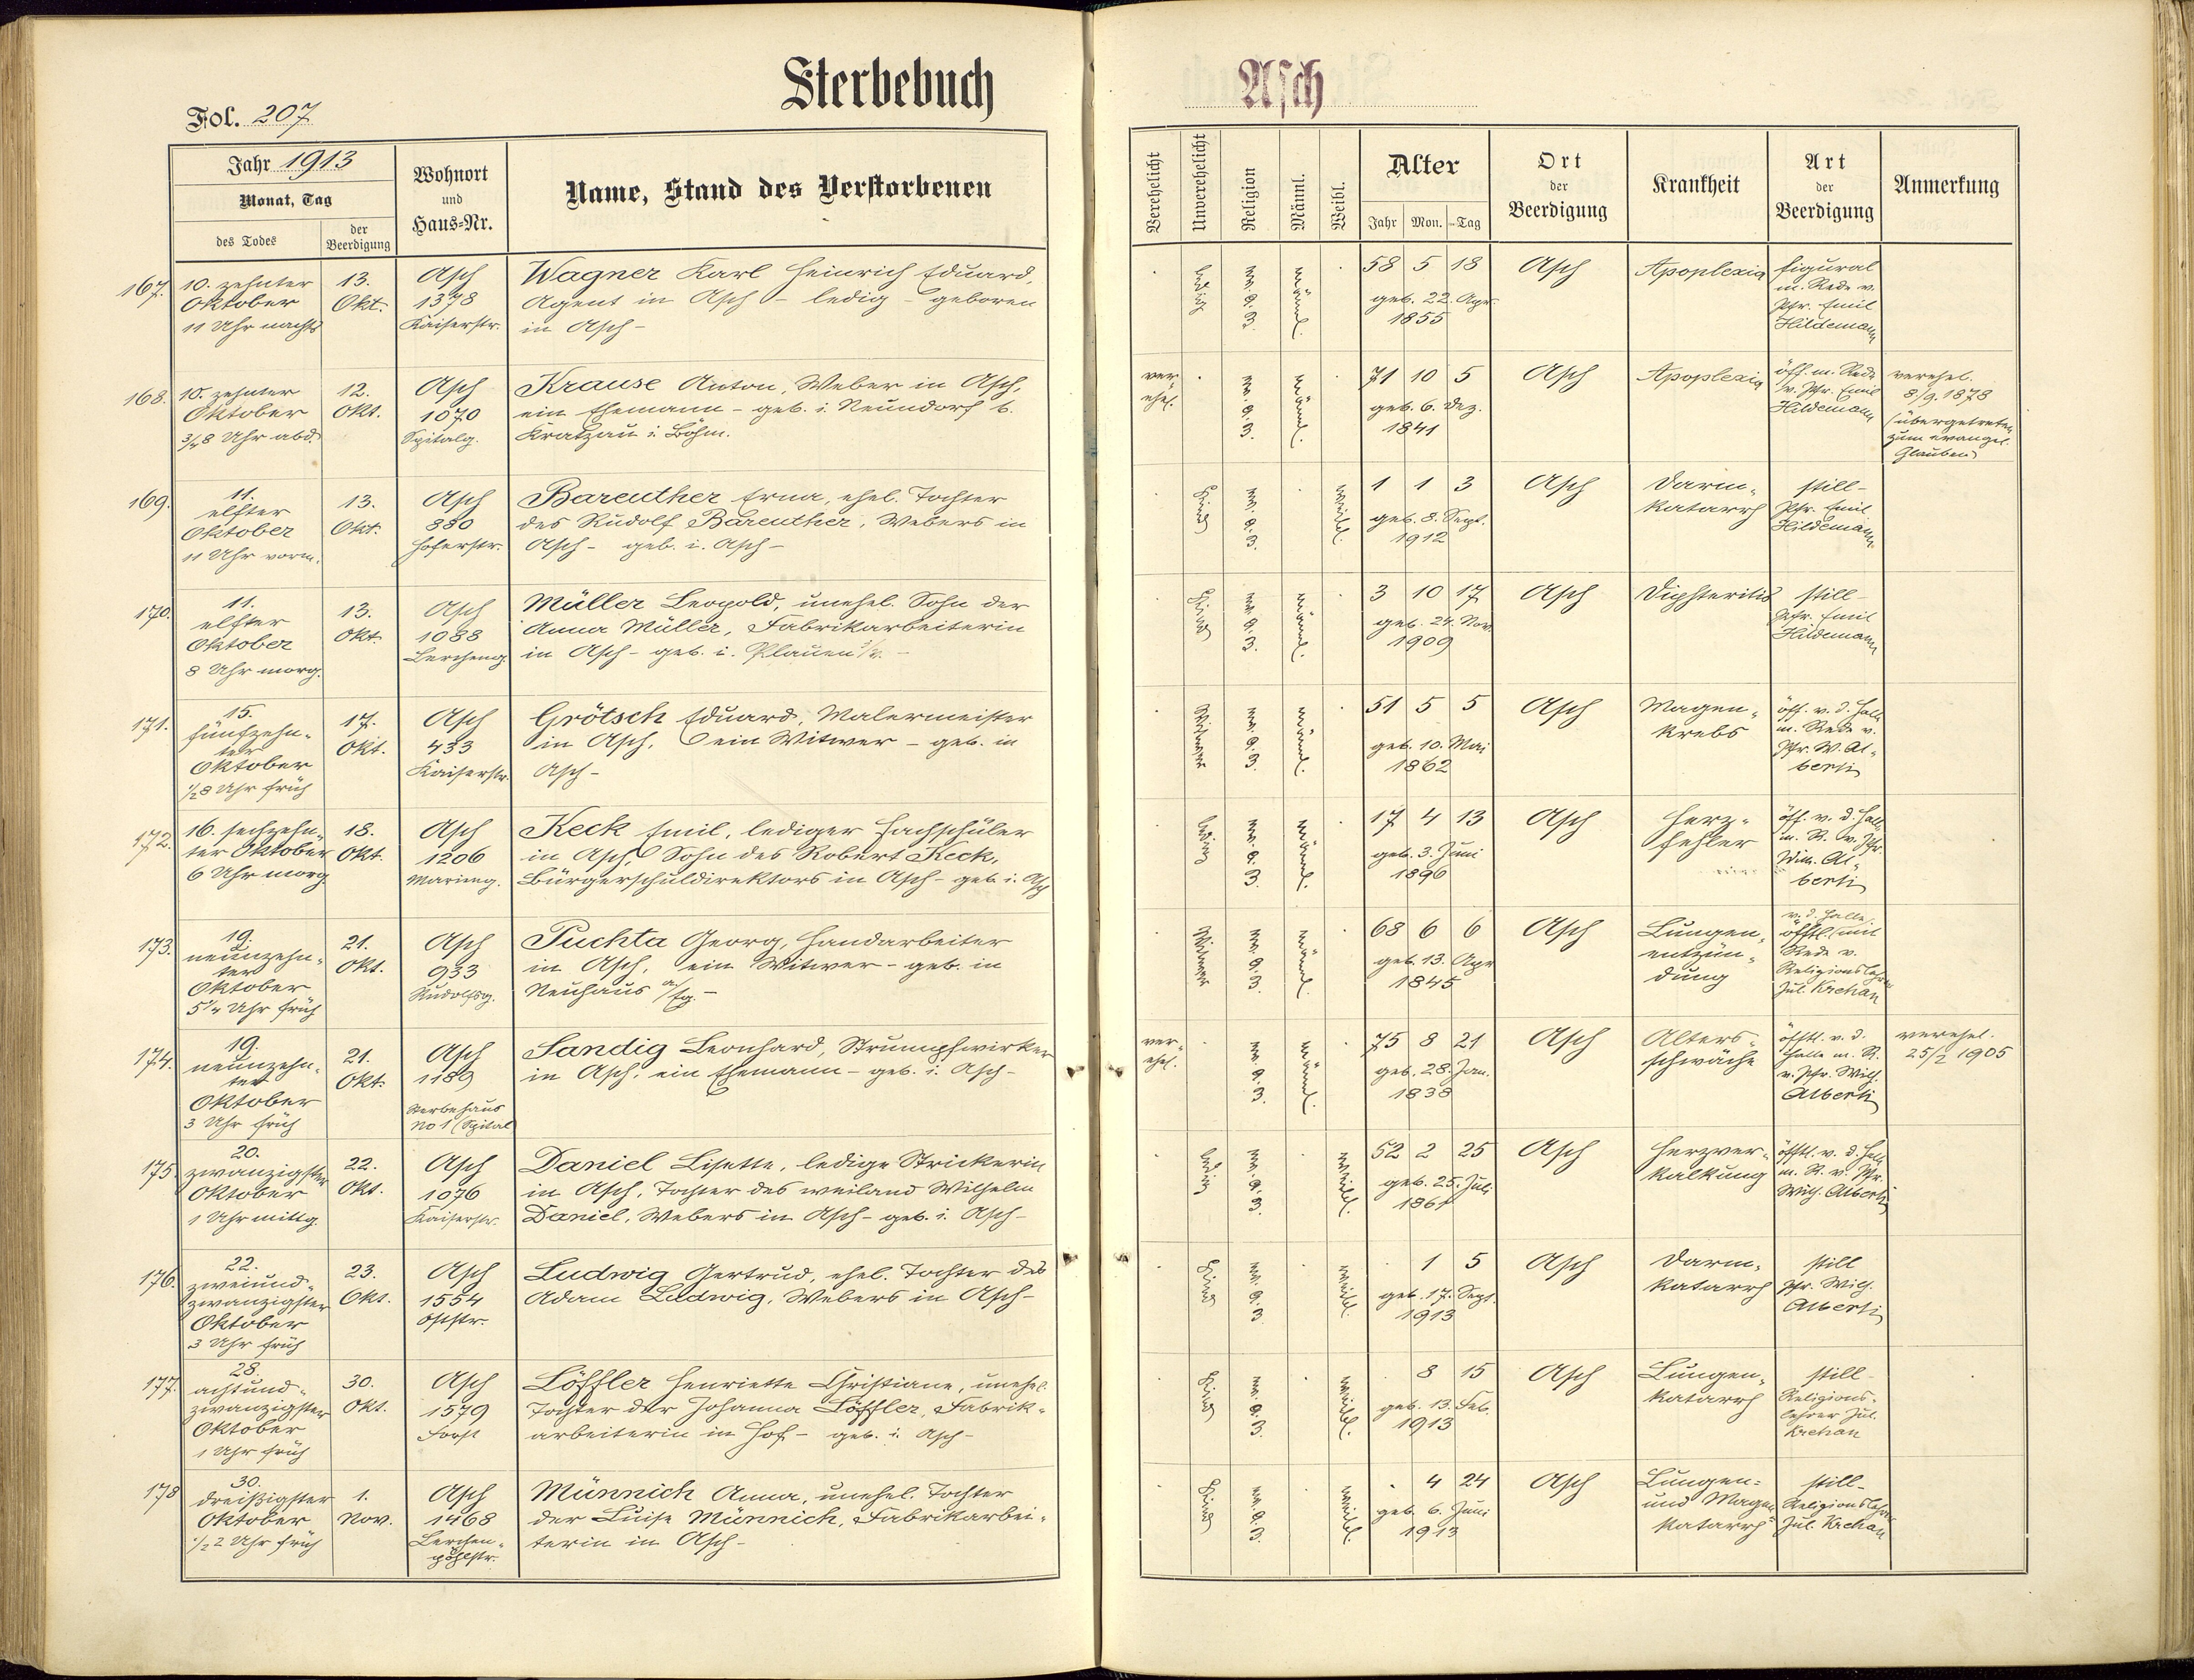 Sterbebuch
Asch
Fol. 207
Jahr 1913
Monat, Tag
des Todes
der Beerdigung
Wohnort
und
Haus-Nr.
Name, Stand des Verstorbenen
Verehelicht
Unverehelicht
Religion
Männl.
Weibl.
Alter
Jahr Mon. Tag
Ort
der
Beerdigung
Krankheit
Art
der
Beerdigung
Anmerkung
167. 10. zehnter
Oktober
11 Uhr nachts
13.
Okt.
Asch
1378
Kaiserstr.
Wagner Karl Heinrich Eduard,
Agent in Asch - ledig - geboren
in Asch -
ledig
männl.
58 5 18
geb. 22. Apr.
1855
Asch
Apoplexia
figural
m. Rede v.
Pfr. Emil
Hildemann
168. 10. zehnter
Oktober
3/4 8 Uhr abd.
12.
Okt.
Asch
1070
Spitalg.
Krause Anton, Weber in Asch,
ein Ehemann - geb. i. Neundorf b.
Kratzau i. Böhm.
ver-
ehel.
männl.
71 10 5
geb. 6. Dez.
1841
Asch
Apoplexia
öff. m. Rede
v. Pfr. Emil
Hildemann
verehel.
8/9. 1878
(übergetreten
zum evangel.
Glauben)
169. 11.
elfter
Oktober
11 Uhr vorm.
13.
Okt.
Asch
880
Hoferstr.
Bareuther Erna, ehel. Tochter
des Rudolf Bareuther, Webers in
Asch - geb. i. Asch -
Kind
weibl.
1 1 3
geb. 8. Sept.
1912
Asch
Darm-
katarrh
still -
Pfr. Emil
Hildemann
170. 11.
elfter
Oktober
8 Uhr morg.
13.
Okt.
Asch
1088
Lercheng.
Müller Leopold, unehel. Sohn der
Anna Müller, Fabrikarbeiterin
in Asch - geb. i. Plauen i/V. -
Kind
männl.
3 10 17
geb. 24. Nov.
1909
Asch
Diphteritis
still -
Pfr. Emil
Hildemann
171. 15.
fünfzehn-
ter
Oktober
1/2 8 Uhr früh
17.
Okt.
Asch
433
Kaiserstr.
Grötsch Eduard, Malermeister
in Asch, ein Witwer - geb. in
Asch -
Witwer
männl.
51 5 5
geb. 10. Mai
1862
Asch
Magen-
krebs
öff. v. d. Halle
m. Rede v.
Pfr. W. Al-
berti
172. 16. sechzehn-
ter Oktober
6 Uhr morg.
18.
Okt.
Asch
1206
Marieng.
Keck Emil, lediger Fachschüler
in Asch, Sohn des Robert Keck,
Bürgerschuldirektors in Asch - geb. i. Asch
ledig
männl.
17 4 13
geb. 3. Juni
1896
Asch
Herz-
fehler
öff. v. d. Halle
m. R. v. Pfr.
Wilh. Al-
berti
173. 19.
neunzehn-
ter
Oktober
5 1/4 Uhr früh
21.
Okt.
Asch
933
Rudolfsg.
Puchta Georg, Handarbeiter
in Asch, ein Witwer - geb. in
Neuhaus a/Eg. -
Witwer
männl.
68 6 6
geb. 13. Apr
1845
Asch
Lungen-
entzün-
dung
v. d. Halle,
öfftl. mit
Rede v.
Religionslehrer
Jul. Krehan
174. 19.
neunzehn-
ter
Oktober
3 Uhr früh
21.
Okt.
Asch
1189
Sterbehaus
No 1 (Spital
Sandig Leonhard, Strumpfwirker
in Asch, ein Ehemann - geb. i. Asch -
ver-
ehel.
männl.
75 8 21
geb. 28. Jan.
1838
Asch
Alters-
schwäche
öfftl. v. d.
Halle m. R.
v. Pfr. Wilh.
Alberti
verehel.
25/2 1905
175. 20.
zwanzigster
Oktober
1 Uhr mittg.
22.
Okt.
Asch
1076
Kaiserstr.
Daniel Lisette, ledige Strickerin
in Asch, Tochter des weiland Wilhelm
Daniel, Webers in Asch - geb. i. Asch -
ledig
weibl.
52 2 25
geb. 25. Juli
1861
Asch
Herzver-
kalkung
öfftl. v. d. Halle
m. R. v. Pfr.
Wilh. Alberti
176. 22.
zweiund-
zwanzigster
Oktober
3 Uhr früh
23.
Okt.
Asch
1554
Oststr.
Ludwig Gertrud, ehel. Tochter des
Adam Ludwig, Webers in Asch -
Kind
weibl.
1 5
geb. 17. Sept.
1913
Asch
Darm-
katarrh
still
Pfr. Wilh.
Alberti
177. 28.
achtund-
zwanzigster
Oktober
1 Uhr früh
30.
Okt.
Asch
1579
Forst
Löffler Henriette Christiane, unehel.
Tochter der Johanna Löffler, Fabrik-
arbeiterin in Hof - geb. i. Asch -
Kind
weibl.
8 15
geb. 13. Feb.
1913
Asch
Lungen-
katarrh
still -
Religions-
lehrer Jul.
Krehan
178 30.
dreißigster
Oktober
1/2 2 Uhr früh
1.
Nov.
Asch
1468
Lerchen-
pöhlstr.
Münnich Anna, unehel. Tochter
der Luise Münnich, Fabrikarbei-
terin in Asch -
Kind
weibl.
4 24
geb. 6. Juni
1913
Asch
Lungen-
und Magen-
katarrh
still -
Religionslehrer
Jul. Krehan